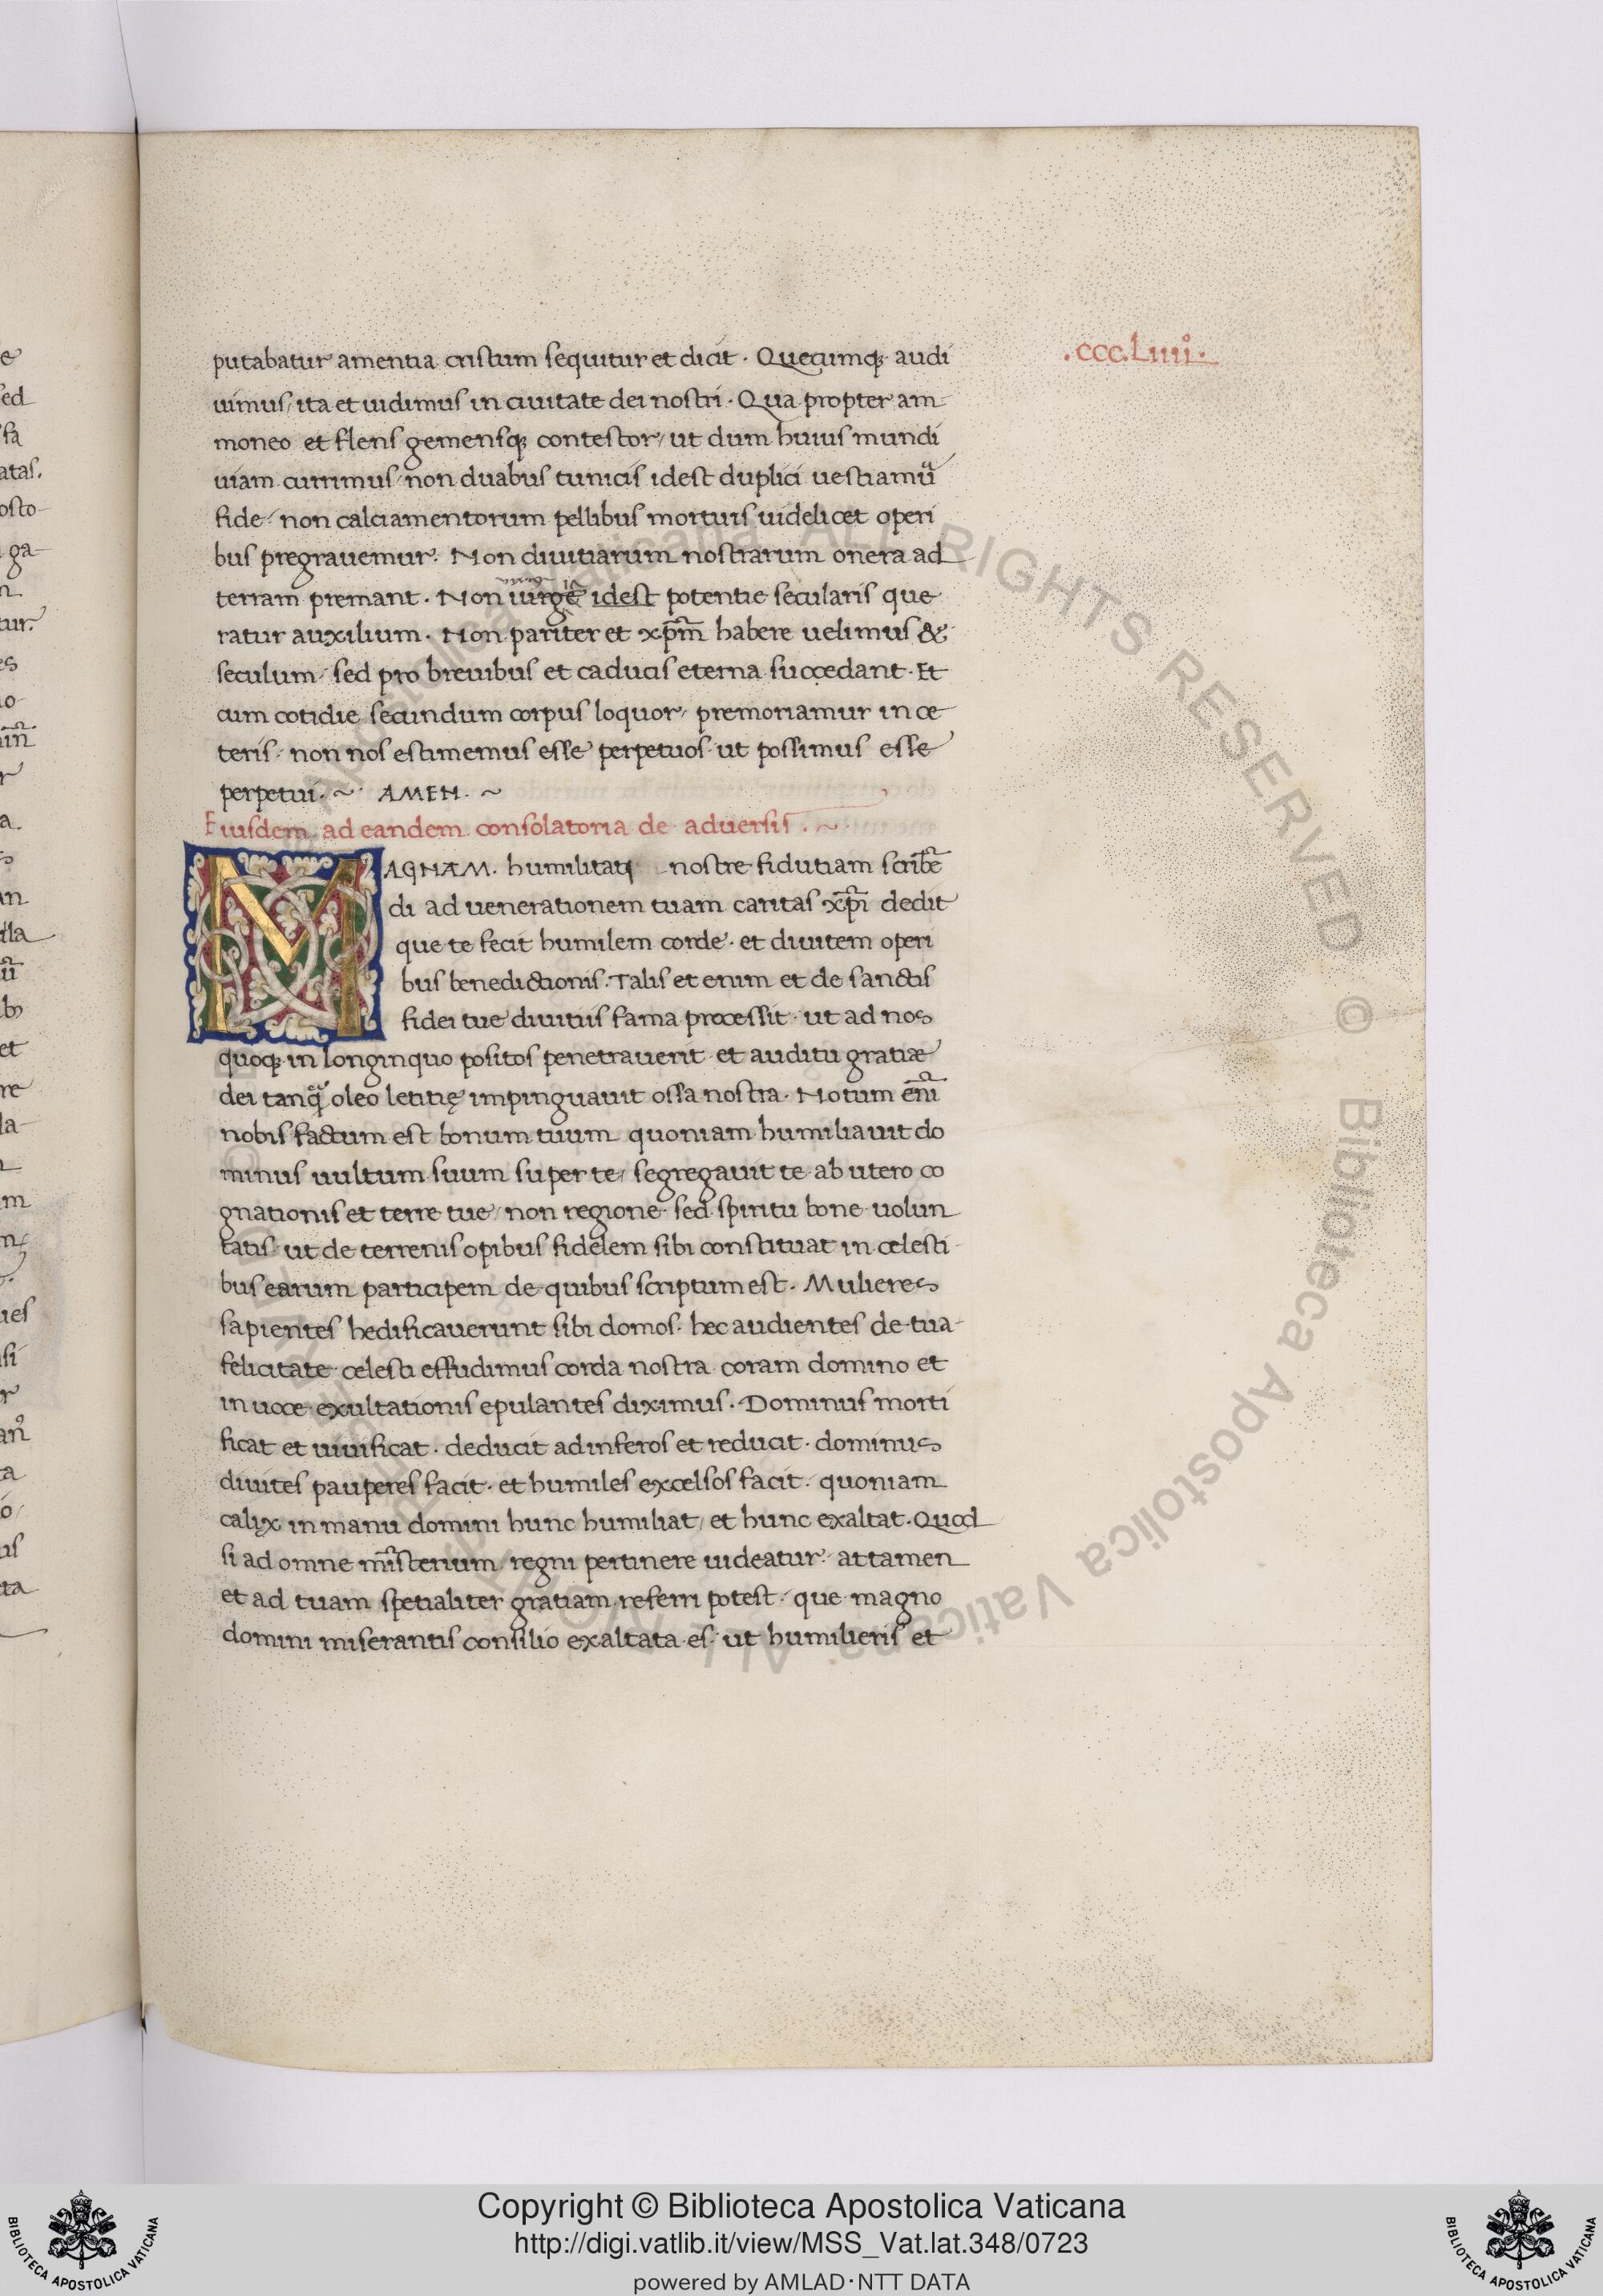 .ccc.Liiiiº.
putabatur amentia cristum sequitur et dicit . Quecumqꝫ audi
uimus, ita et uidimus in ciuitate dei nostri . Qua propter am
moneo et flens gemensqꝫ contestor, ut dum huius mundi
uiam currimus, non duabus tunicis idest duplici uestiamũ
fide, non calciamentorum pellibus mortuis uidelicet operi
bus pregrauemur. Non diuitiarum nostrarum onera ad
terram premant . Non idest potentie secularis que
ratur auxilium . Non pariter et xp̃m habere uelimus &
seculum, sed pro breuibus et caducis eterna succedant . Et
cum cotidie secundum corpus loquor, premoriamur in ce
teris, non nos estimemus esse perpetuos ut possimus esse
perpetui . ~ AMEN . ~
Eiusdem ad eandem consolatoria de aduersis . ~
MAGNAM. humilitati nostre fidutiam scribẽ
di ad uenerationem tuam caritas xp̃i dedit
que te fecit humilem corde . et diuitem operi
bus benedictionis . Talis et enim et de sanctis
fidei tue diuitiis fama processit . ut ad nos
quoqꝫ in longinquo positos penetrauerit et auditu gratiæ
dei tanq̃ oleo letitię impinguauit ossa nostra . Notum em̃
nobis factum est bonum tuum quoniam humiliauit do
minus uultum suum super te, segregauit te ab utero co
gnationis et terre tue, non regione sed spiritu bone uolun
tatis ut de terrenis opibus fidelem sibi constituat in celesti
bus earum participem de quibus scriptum est . Mulieres
sapientes hedificauerunt sibi domos . hec audientes de tua
felicitate celesti effudimus corda nostra coram domino et
in uoce exultationis epulantes diximus . Dominus morti
ficat et uiuificat . deducit ad inferos et reducit . dominus
diuites pauperes facit . et humiles excelsos facit . quoniam
calix in manu domini hunc humiliat, et hunc exaltat . Quod
si ad omne mĩsterium regni pertinere uideatur. attamen
et ad tuam spetialiter gratiam referri potest . que magno
domini miserantis consilio exaltata es . ut humilieris et
Copyright © Biblioteca Apostolica Vaticana
http://digi.vatlib.it/view/MSS_Vat.lat.348/0723
powered by AMLAD·NTT DATA
BIBLIOTECA APOSTOLICA VATICANA
BIBLIOTECA APOSTOLICA VATICANA